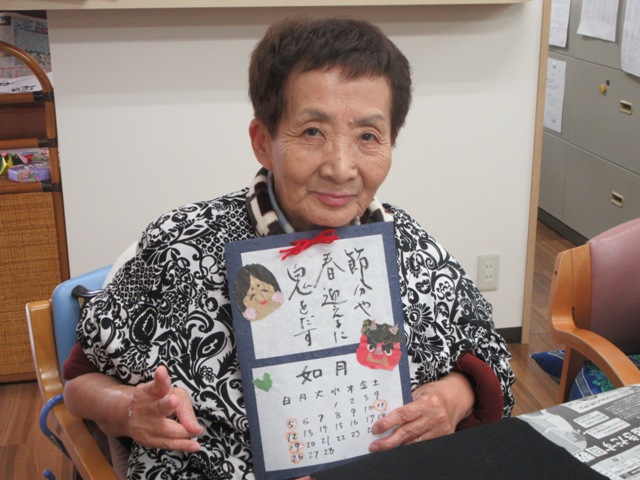 節分や
春迎えるに
鬼をだす
如月
日月火水木金土
1 2 3 4
5 6 7 8 9 10 11
12 13 14 15 16 17 18
19 20 21 22 23 24 25
26 27 28